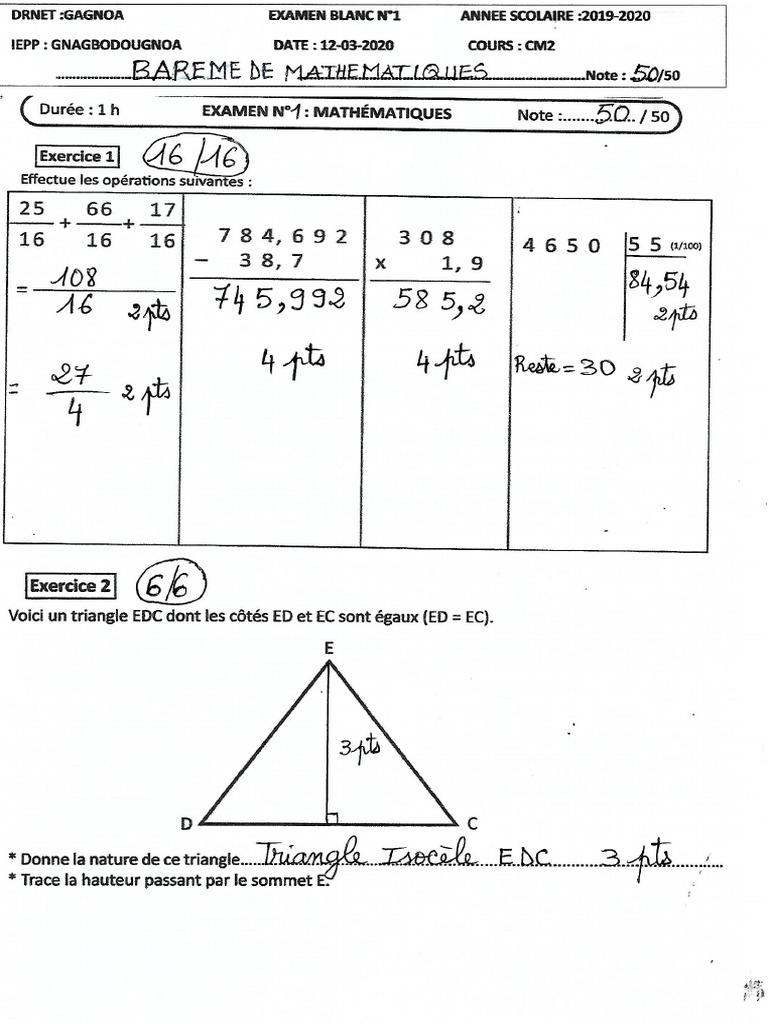 DRNET :GAGNOA EXAMEN BLANC N°1 ANNEE SCOLAIRE :2019-2020
IEPP : GNAGBODOUGNOA DATE : 12-03-2020 COURS : CM2
BAREME DE MATHEMATIQUES Note : 50/50
Durée : 1 h EXAMEN N°1 : MATHÉMATIQUES Note :.......50../ 50
Exercice 1 16/16
Effectue les opérations suivantes :
25/16 + 66/16 + 17/16
= 108/16 2 pts
= 27/4 2 pts
7 8 4, 6 9 2
− 3 8, 7
745,992
4 pts
3 0 8
x 1, 9
585,2
4 pts
4 6 5 0 5 5 (1/100)
84,54
2 pts
Reste = 30 2 pts
Exercice 2 6/6
Voici un triangle EDC dont les côtés ED et EC sont égaux (ED = EC).
E
3 pts
D C
* Donne la nature de ce triangle....Triangle Isocèle EDC 3 pts
* Trace la hauteur passant par le sommet E.